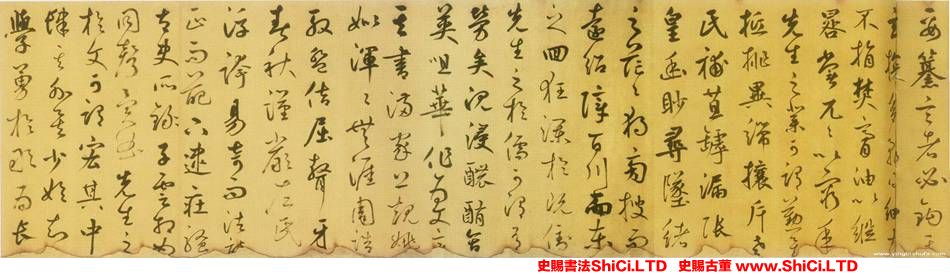 要纂言者必鉤其
玄貪多務得細大
不捐焚膏油以繼
晷常兀兀以窮年
先生之業可謂勤矣
觝排異端攘斥老
氏補苴罅漏張
皇幽眇尋墜緒
之茫茫獨旁搜而
遠紹障百川而東
之回狂瀾於既倒
先生之於儒可謂有
勞矣沉浸醲含
英咀華作為文章
其書滿家上規姚
姒渾渾無涯周誥
殷盤佶屈聱牙
春秋謹嚴左氏
浮誇易奇而法詩
正而葩下逮莊騷
太史所錄子雲相如
同先生之
於文可謂宏其中
肆其外矣少始知
學勇於敢為長
史賜書法ShiCi.LTD 史賜古董 www.ShiCi.LTD